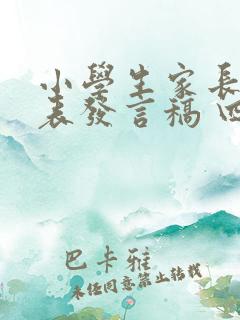 小學生家長
表發言稿
巴卡雅
未经同意禁止转载